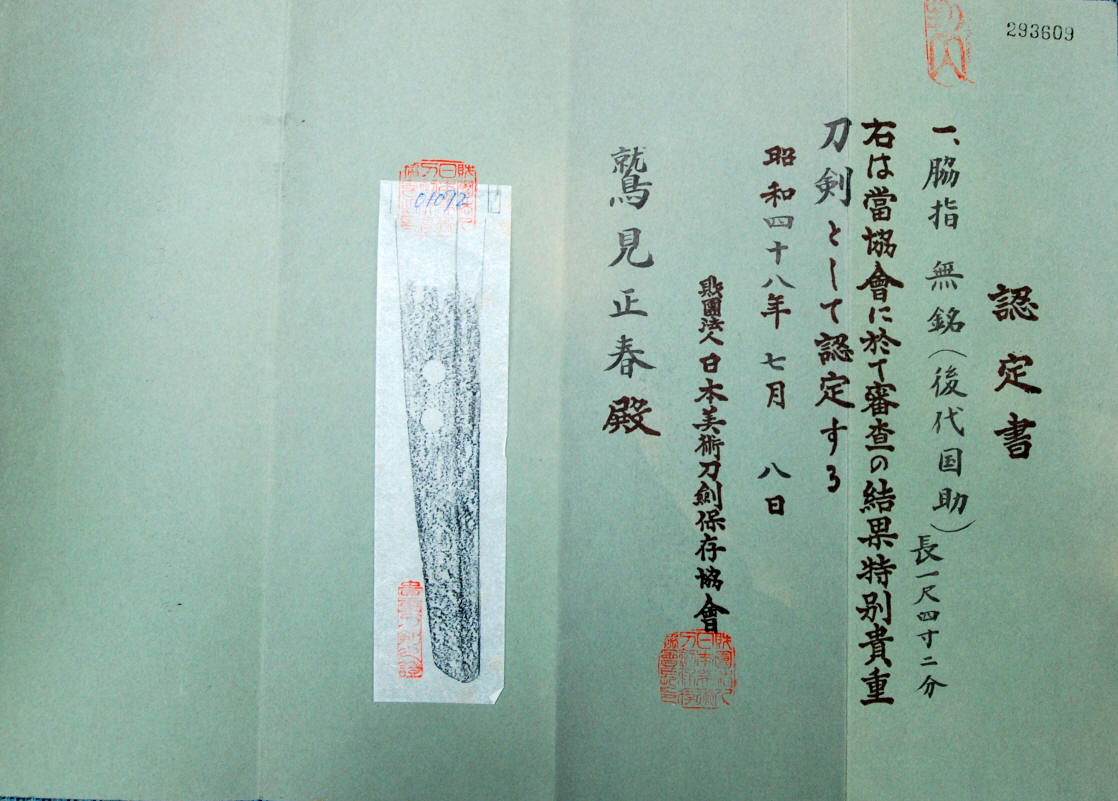 293609
認定書
一、脇指 無銘(後代国助)長一尺四寸二分
右は當協會に於て審査の結果特別貴重
刀剣として認定する
昭和四十八年 七月 八日
財團法人日本美術刀劍保存協會
鷲見正春殿
01072